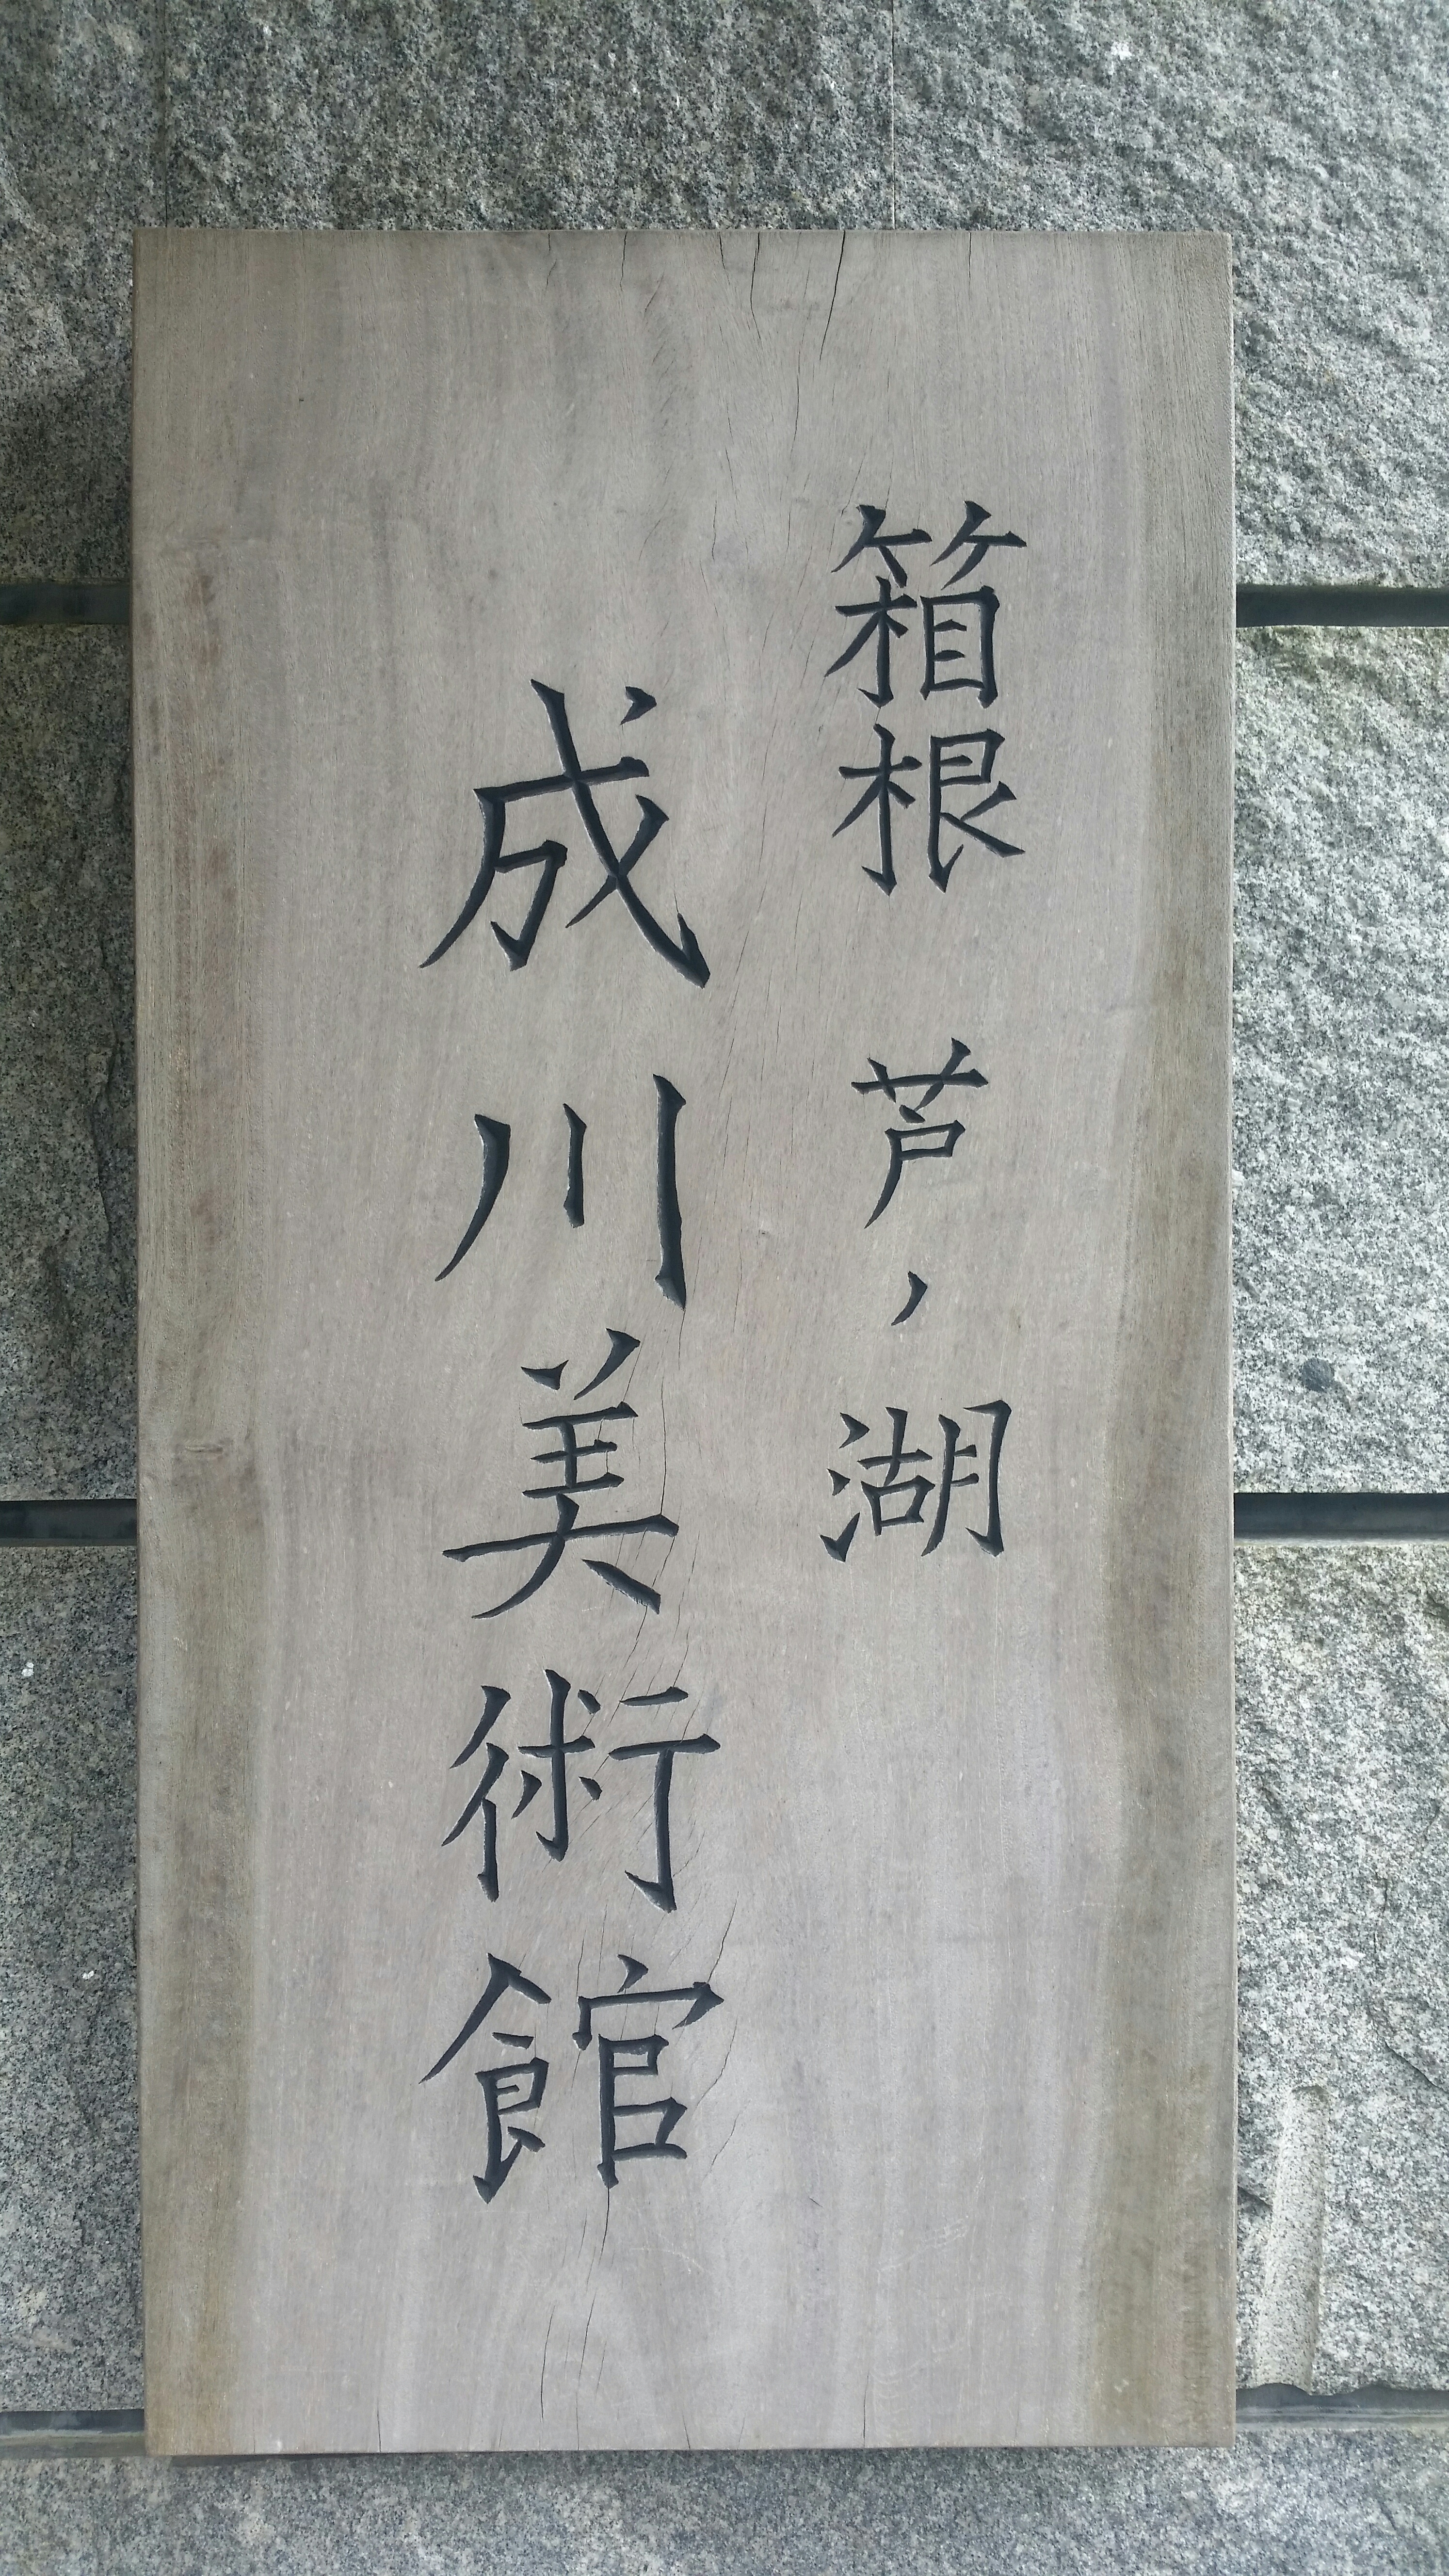 箱根 芦ノ湖
成川美術館